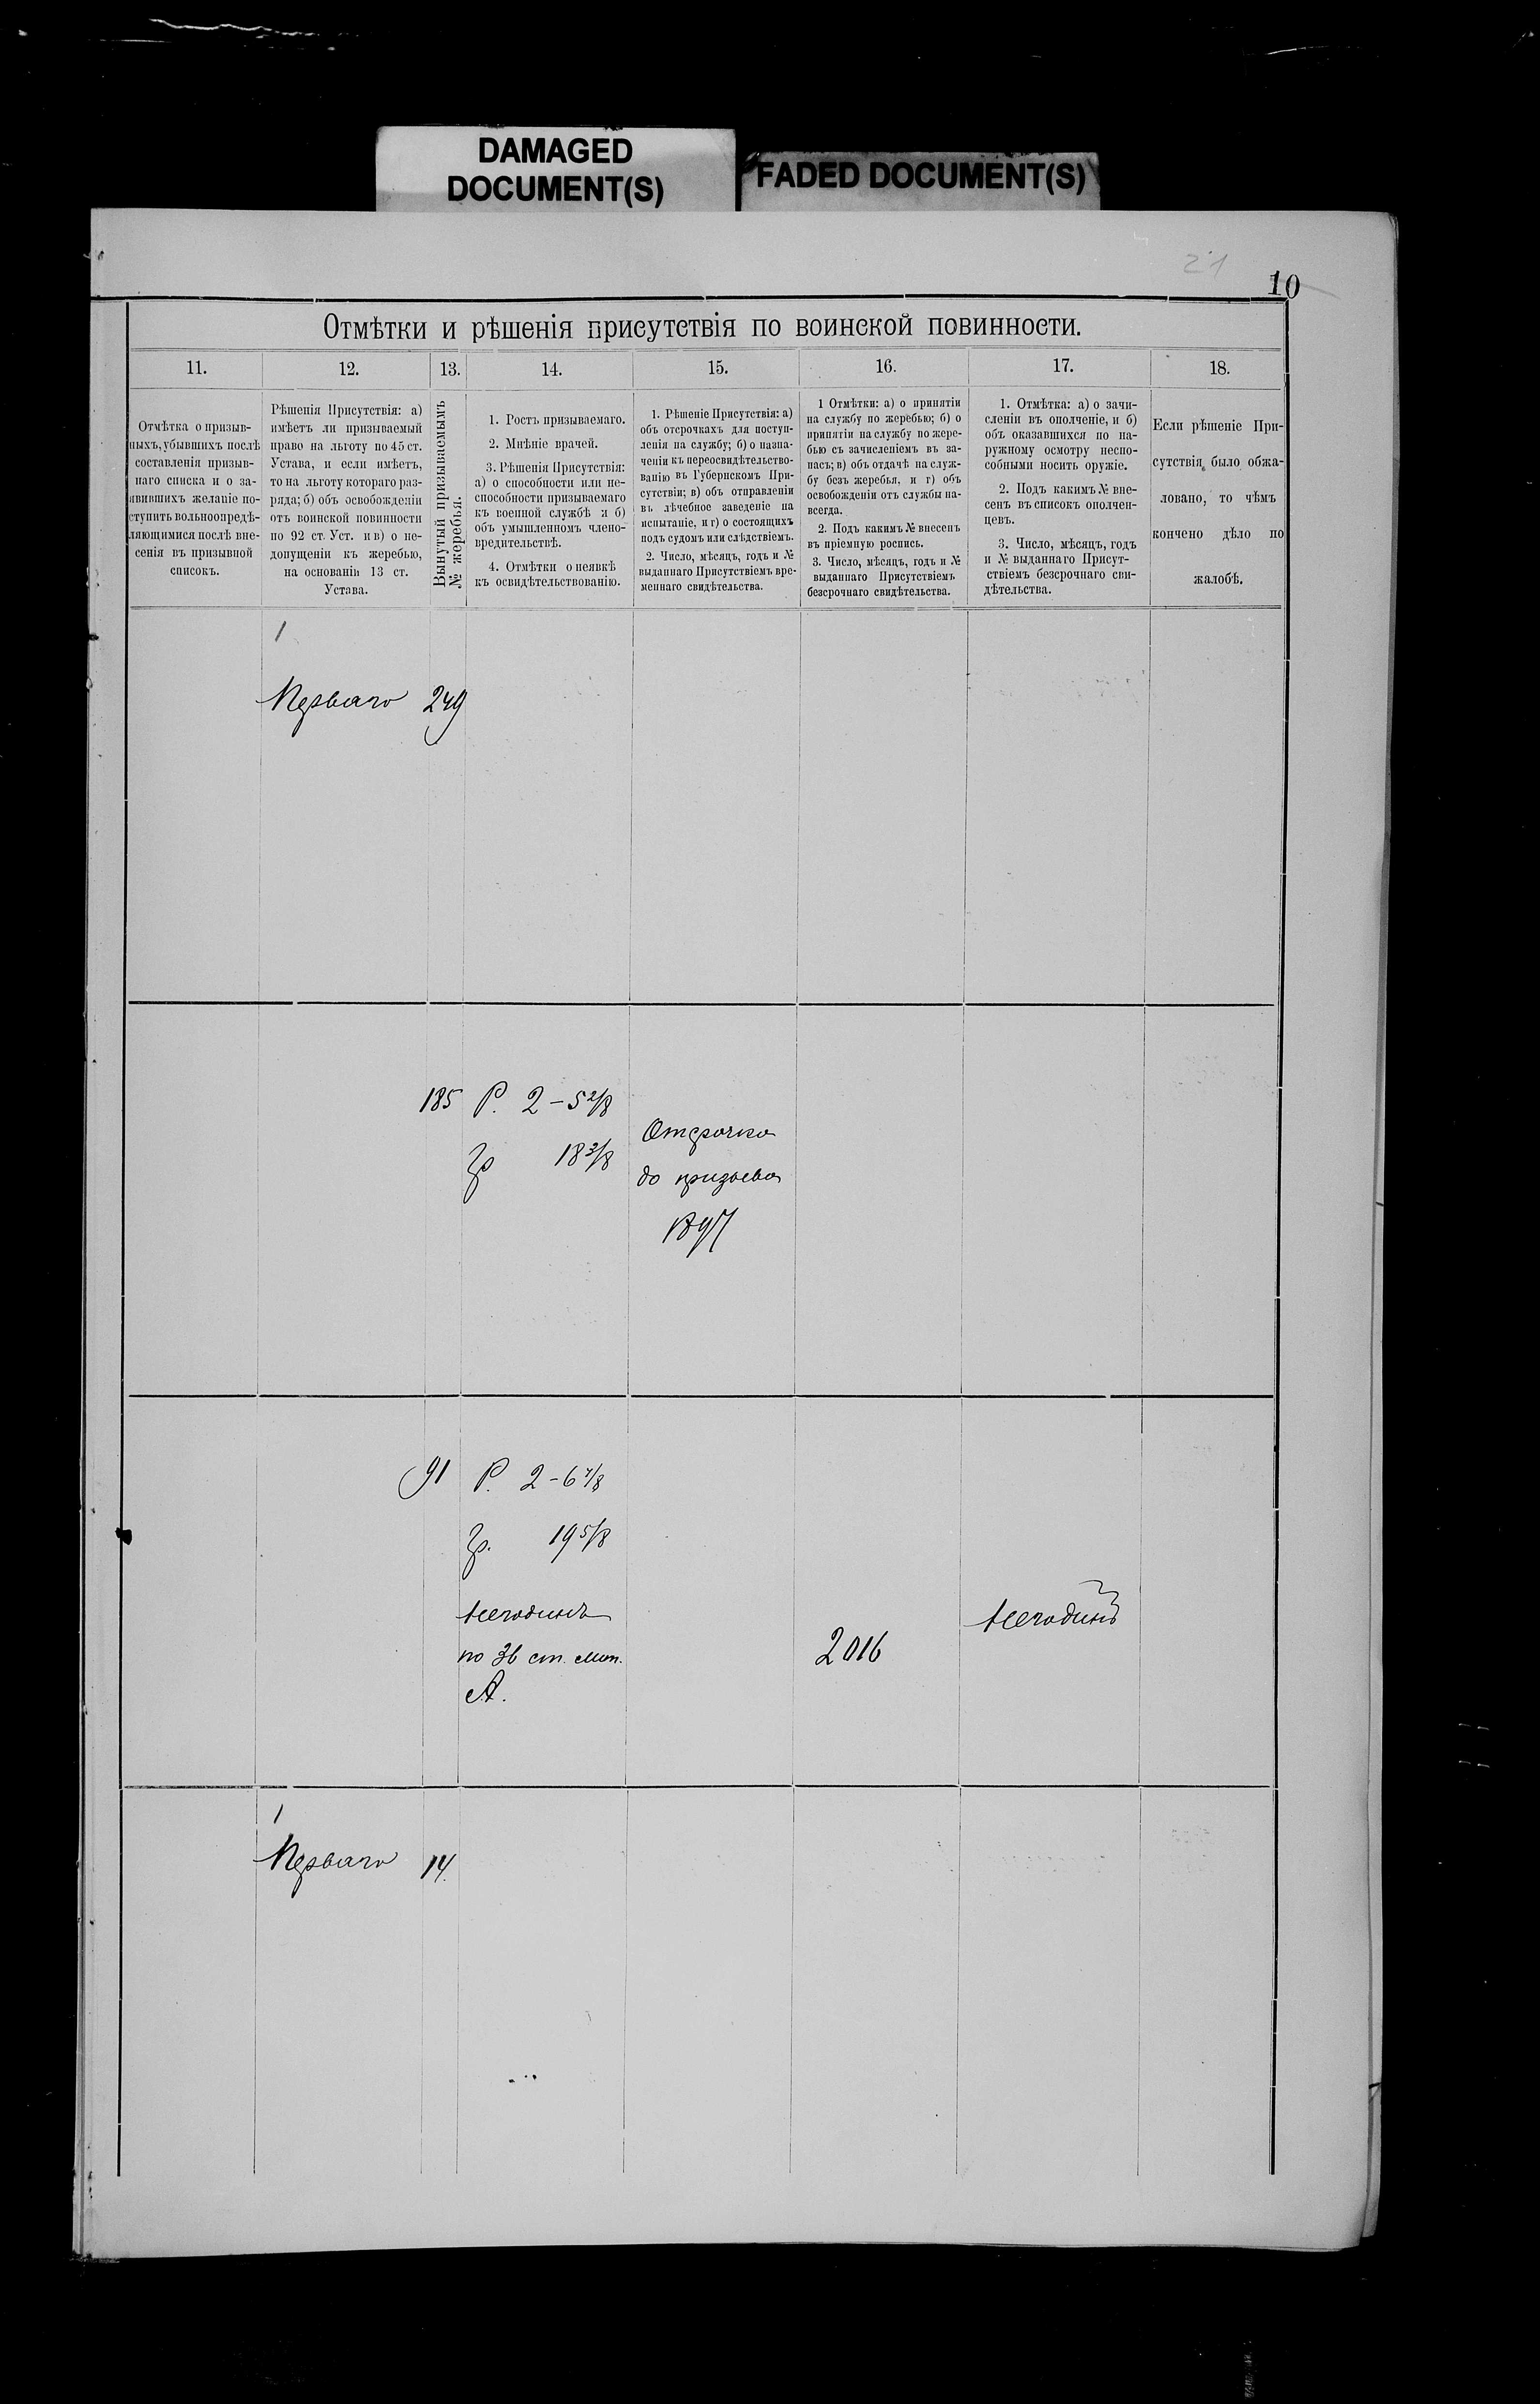 DAMAGED
DOCUMENT(S)
FADED DOCUMENT(S)
21
10
Отмѣтки и рѣшенія присутствія по воинской повинности.
11.
Отмѣтка о призыв-
ныхъ, убывшихъ послѣ
составленія призыв-
наго списка и о за-
явившихъ желаніе по-
ступить вольноопредѣ-
ляющимися послѣ вне-
сенія въ призывной
списокъ.
12.
Рѣшенія Присутствія: а)
имѣетъ ли призываемый
право на льготу по 45 ст.
Устава, и если имѣетъ,
то на льготу котораго раз-
ряда; б) объ освобожденіи
отъ воинской повинности
по 92 ст. Уст. и в) о не-
допущеніи къ жеребью,
на основаніи 13 ст.
Устава.
13.
Вынутый призываемымъ
№ жеребья.
14.
1. Ростъ призываемаго.
2. Мнѣніе врачей.
3. Рѣшенія Присутствія:
а) о способности или не-
способности призываемаго
къ военной службѣ и б)
объ умышленномъ члено-
вредительствѣ.
4. Отмѣтки о неявкѣ
къ освидѣтельствованію.
15.
1. Рѣшеніе Присутствія: а)
объ отсрочкахъ для поступ-
ленія на службу; б) о назна-
ченіи къ переосвидѣтельство-
ванію въ Губернскомъ При-
сутствіи; в) объ отправленіи
въ лѣчебное заведеніе на
испытаніе, и г) о состоящихъ
подъ судомъ или слѣдствіемъ.
2. Число, мѣсяцъ, годъ и №
выданнаго Присутствіемъ вре-
меннаго свидѣтельства.
16.
1 Отмѣтки: а) о принятіи
на службу по жеребью; б) о
принятіи на службу по жере-
бью съ зачисленіемъ въ за-
пасъ; в) объ отдачѣ на служ-
бу безъ жеребья, и г) объ
освобожденіи отъ службы на-
всегда.
2. Подъ какимъ № внесенъ
въ пріемную роспись.
3. Число, мѣсяцъ, годъ и №
выданнаго Присутствіемъ
безсрочнаго свидѣтельства.
17.
1. Отмѣтка: а) о зачи-
сленіи въ ополченіе, и б)
объ оказавшихся по на-
ружному осмотру неспо-
собными носить оружіе.
2. Подъ какимъ № вне-
сенъ въ списокъ ополчен-
цевъ.
3. Число, мѣсяцъ, годъ
и № выданнаго Присут-
ствіемъ безсрочнаго сви-
дѣтельства.
18.
Если рѣшеніе При-
сутствія было обжа-
ловано, то чѣмъ
кончено дѣло по
жалобѣ.
1
Перваго 249
185 Р. 2-5 2/8
Гр 18 3/8
Отсрочка
до призыва
1897
91 Р. 2-6 7/8
Гр. 19 5/8
Негоденъ
по 36 ст. лит.
А.
2016
Негоденъ
1
Перваго 14.